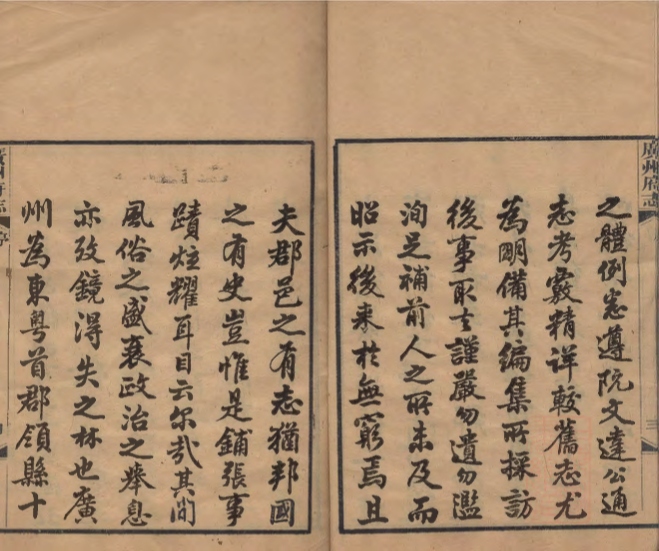 廣州府志
三
之體例悉遵阮文達公通
志考覈精詳較舊志尤
為明備其編集所採訪
後事取去謹嚴勿遺勿濫
洵足補前人之所未及而
昭示後来於無窮焉且
夫郡邑之有志猶邦國
之有史豈惟是鋪張事
蹟炫耀耳目云尔哉其间
風俗之盛衰政治之舉息
亦攷鏡得失之林也廣
州為東粤首郡領縣十
廣州府志
序